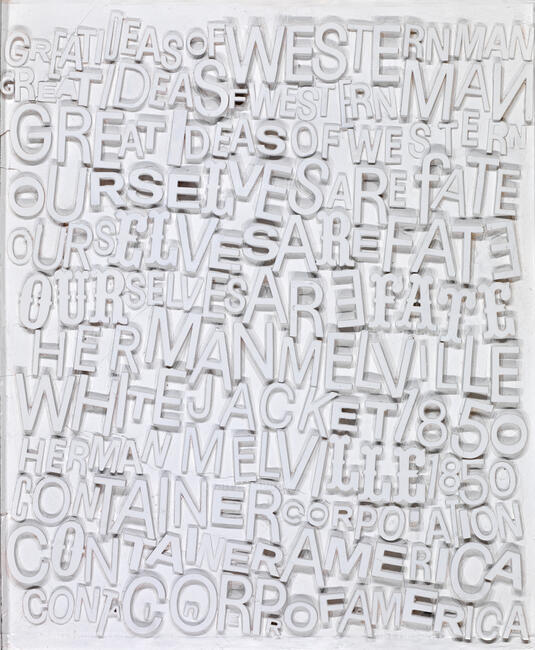 GREAT IDEAS OF WESTERN MAN
GREAT IDEAS OF WESTERN MAN
GREAT IDEAS OF WESTERN
OURSELVES ARE FATE
OURSELVES ARE FATE
OURSELVES ARE FATE
HERMAN MELVILLE
WHITE JACKET/1850
HERMAN MELVILLE/1850
CONTAINER CORPORATION
CONTAINER AMERICA
CONTA CORP OF AMERICA